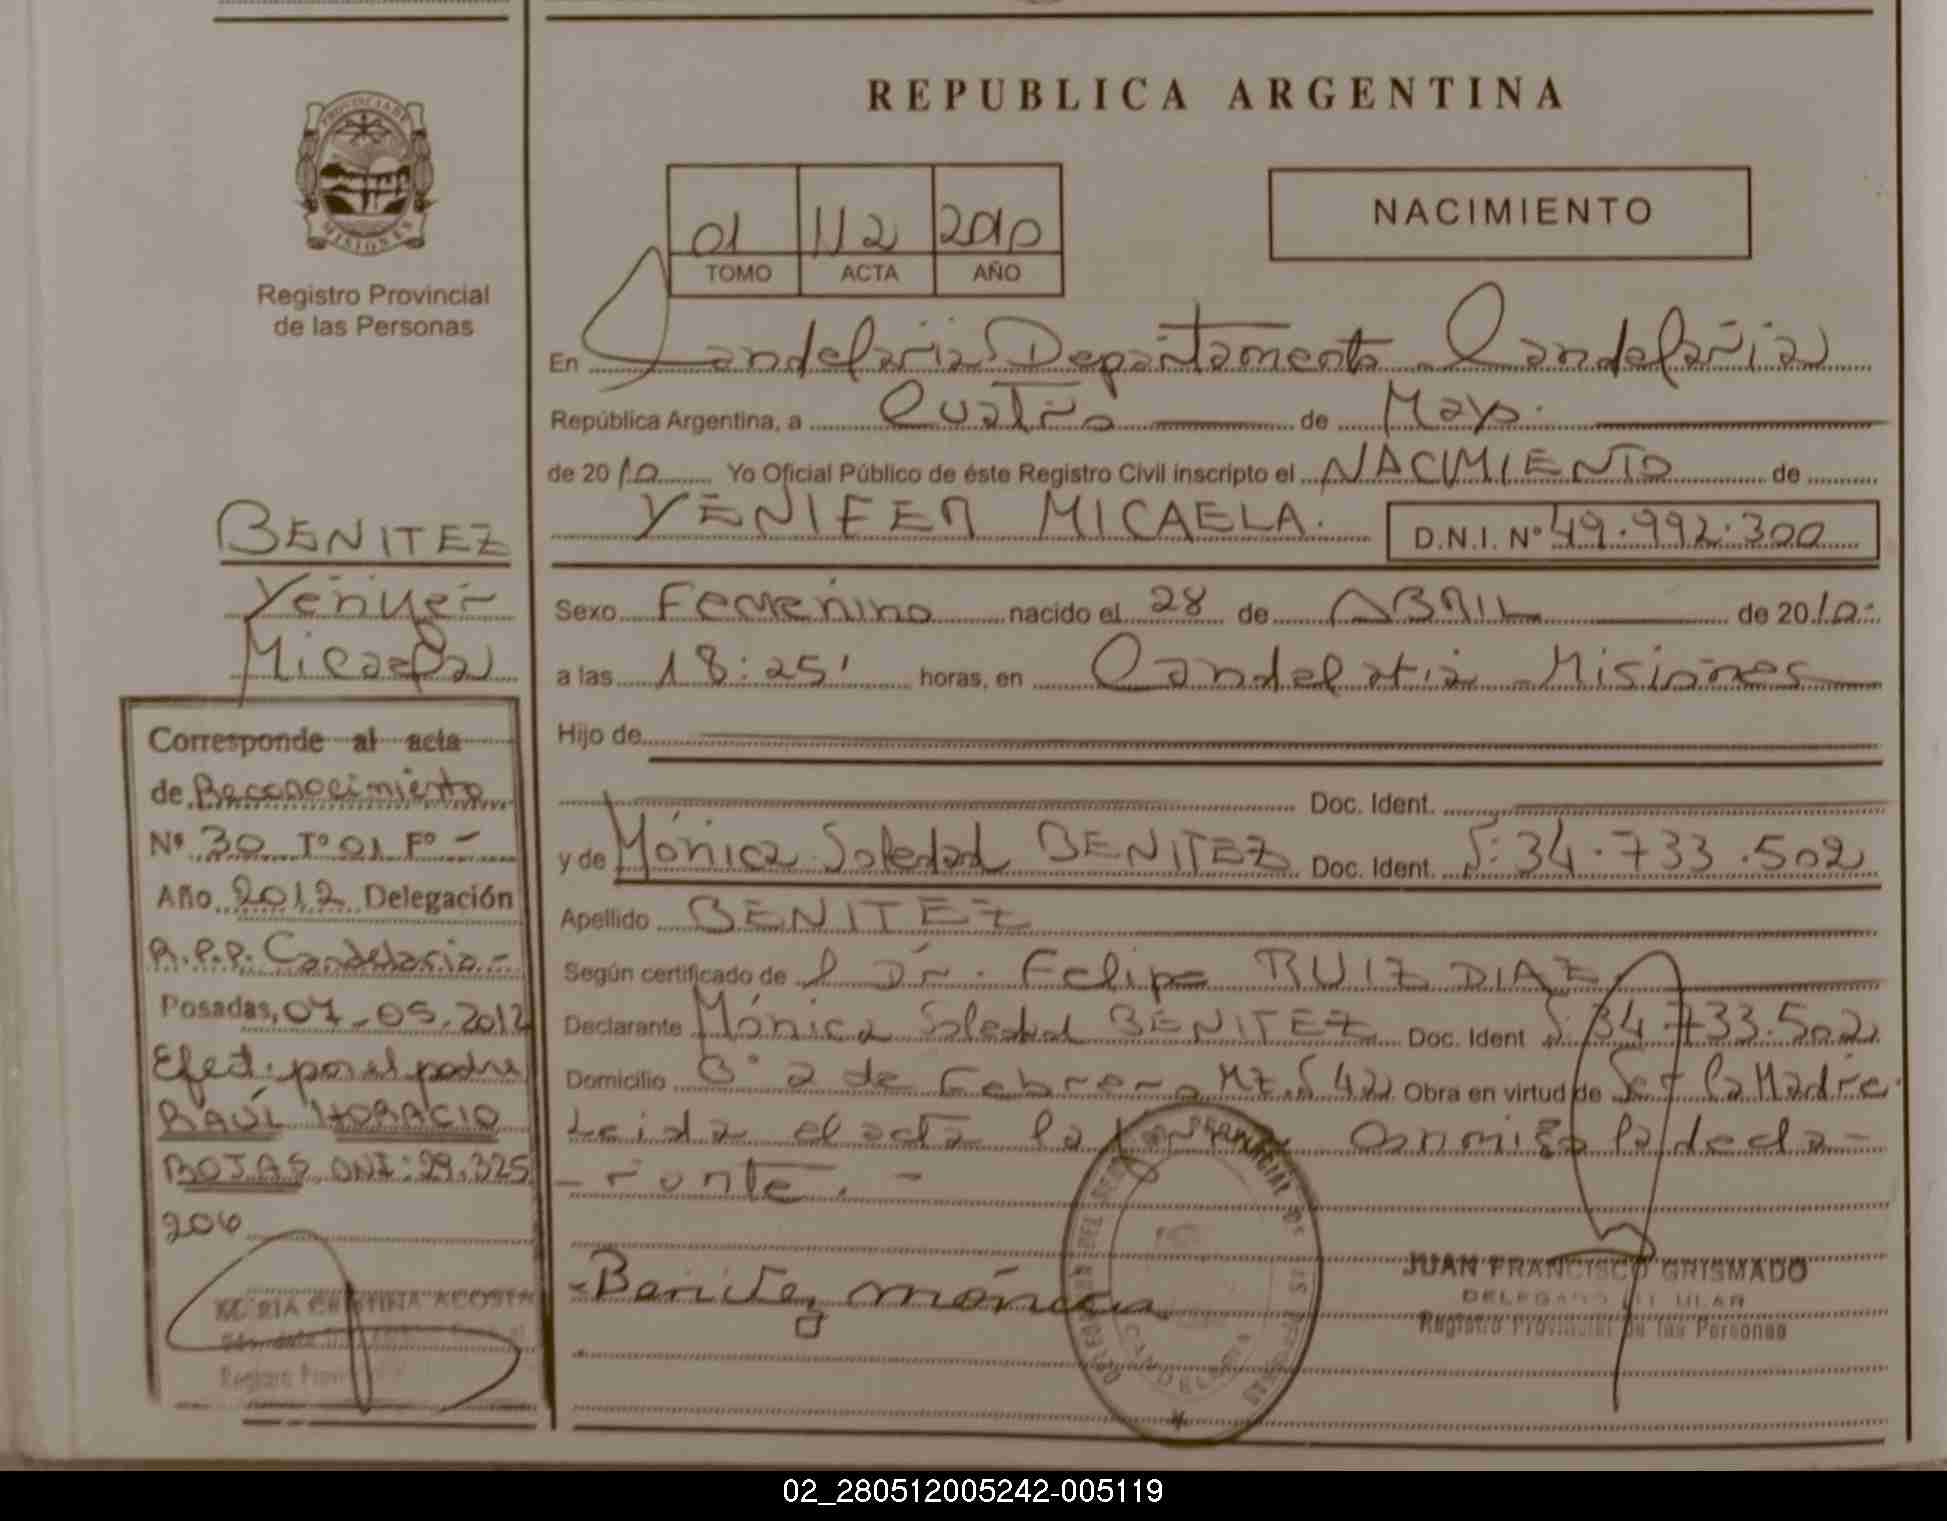 REPUBLICA ARGENTINA
PROVINCIA DE
MISIONES
Registro Provincial
de las Personas
01 112 2010
TOMO ACTA AÑO
NACIMIENTO
En Candelaria Departamento Candelaria
República Argentina, a Cuatro de Mayo.
de 2010 Yo Oficial Público de éste Registro Civil inscripto el NACIMIENTO de
YENIFER MICAELA. D.N.I. Nº 49.992.300
Sexo Femenino nacido el 28 de ABRIL de 2010
a las 18:25' horas, en Candelaria Misiones
Hijo de
Doc. Ident.
y de Mónica Soledad BENITEZ Doc. Ident. 34.733.502
Apellido BENITEZ
Según certificado de l Dr. Felipe RUIZ DIAZ
Declarante Mónica Soledad BENITEZ Doc. Ident 34.733.502
Domicilio Bº 2 de Febrero Mz. 42 Obra en virtud de Ser la Madre.
Leida el acta la conmigo la decla-
-rante.-
-Benitez mónica
JUAN FRANCISCO GRISMADO
DELEGADO TITULAR
Registro Provincial de las Personas
CANDELARIA
BENITEZ
Yenifer
Micaela
Corresponde al acta
de Reconocimiento
Nº 30 Tº 01 Fº -
Año 2012 Delegación
R.P.P. Candelaria-
Posadas, 07-05-2012
Efect. por el padre
RAÚL HORACIO
ROJAS DNI: 29.325
206
MARIA CRISTINA ACOSTA
Registro
02_280512005242-005119